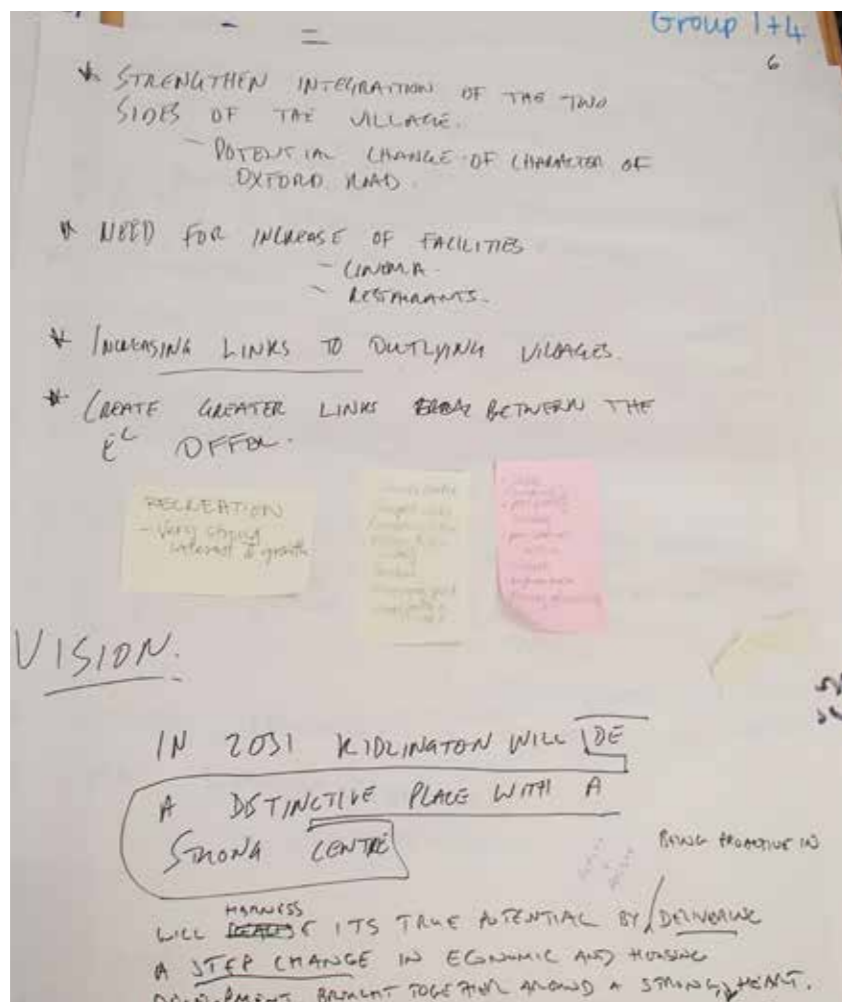 Group 1+4
6
* STRENGTHEN INTEGRATION OF THE TWO
SIDES OF THE VILLAGE.
- POTENTIAL CHANGE OF CHARACTER OF
OXFORD ROAD.
* NEED FOR INCREASE OF FACILITIES
- CINEMA.
- RESTAURANTS.
* INCREASING LINKS TO OUTLYING VILLAGES.
* CREATE GREATER LINKS BETWEEN THE
OFFER.
RECREATION
- Very strong
interest & growth
VISION.
IN 2031 KIDLINGTON WILL BE
A DISTINCTIVE PLACE WITH A
STRONG CENTRE
BEING PROACTIVE IN
HARNESS
WILL ITS TRUE POTENTIAL BY DELIVERING
A STEP CHANGE IN ECONOMIC AND HOUSING
DEVELOPMENT BROUGHT TOGETHER AROUND A STRONG HEART.